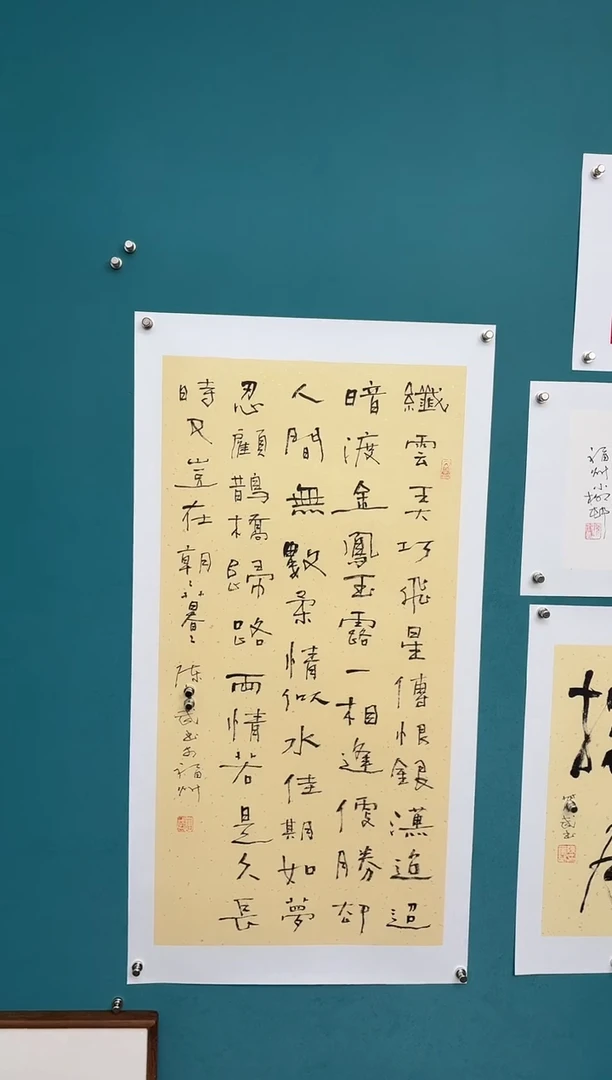 纖雲弄巧飛星傳恨銀漢迢迢
暗渡金鳳玉露一相逢便勝却
人間無數柔情似水佳期如夢
忍顧鵲橋歸路兩情若是久長
時又豈在朝〻暮〻 陈书于福州
福州小柳邨